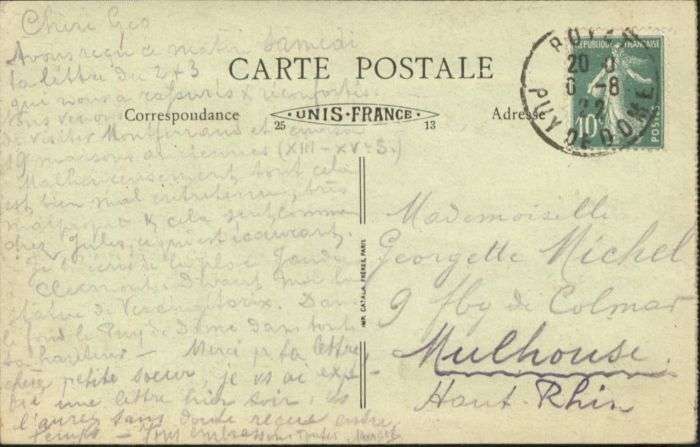 Chère Geo
Avons reçu ce matin samedi
ta lettre du 2 & 3
qui nous a
CARTE POSTALE
Correspondance
UNIS-FRANCE
25 13
Adresse
ROYAT
20
6 -8
22
PUY DE DOME
REPUBLIQUE FRANÇAISE
10
POSTES
de visiter Montferrand et
19 maisons anciennes (XIII-XV-S.)
Malheureusement tout cela
est bien mal entretenu, très
malpropre & cela sent comme
chez Jules, c'en est écœurant.
Je t'écris de la place Jaude
Clermont. Devant moi la
statue de Vercingétorix. Dans
le fond le Puy de Dome dans toute
sa hauteur - Merci pr ta lettre,
chère petite soeur, je vs ai
une lettre hier soir
l'aurez sans doute reçue entre
temps -
IMP. CATALA FRÈRES, PARIS
Mademoiselle
Georgette Michel
9 fbg de Colmar
Mulhouse
Haut-Rhin